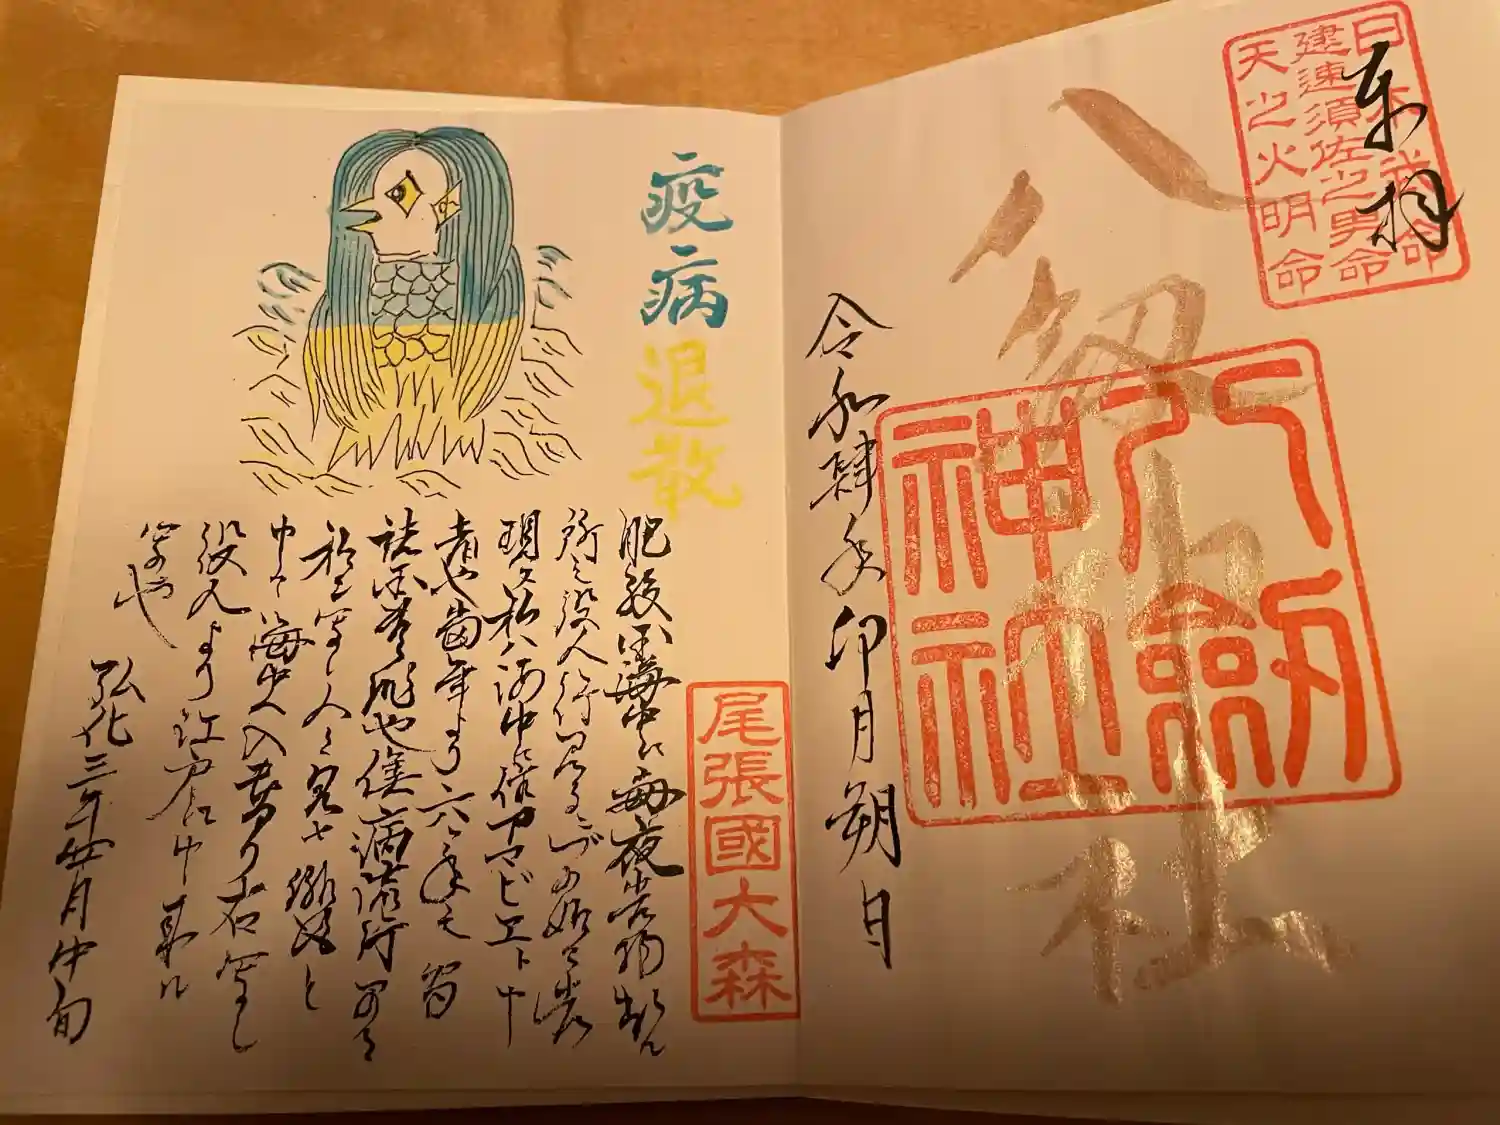 奉拝
日本武命
建速須佐之男命
天之火明命
八剱神社
八剱
神社
令和肆年卯月朔日
疫病退散
尾張國大森
肥後国海中江毎夜光物出ル
所之役人行見るニづの如く者
現ス私ハ海中ニ住アマビヱト申
者也当年より六ヶ年之間
諸国豊作也併病流行早々
私を写シ人々ニ見セ候得と
申て海中へ入けり右写シ
役人より江戸江申来ル
写也
弘化三年四月中旬